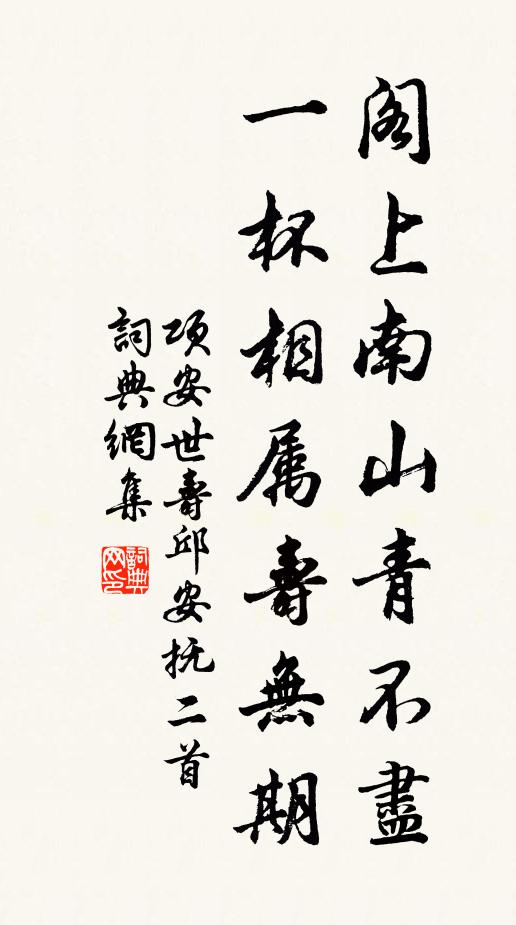 阁上南山青不盡
一杯相属壽無期
项安世壽邱安抚二首
詞典網集
詞典网印